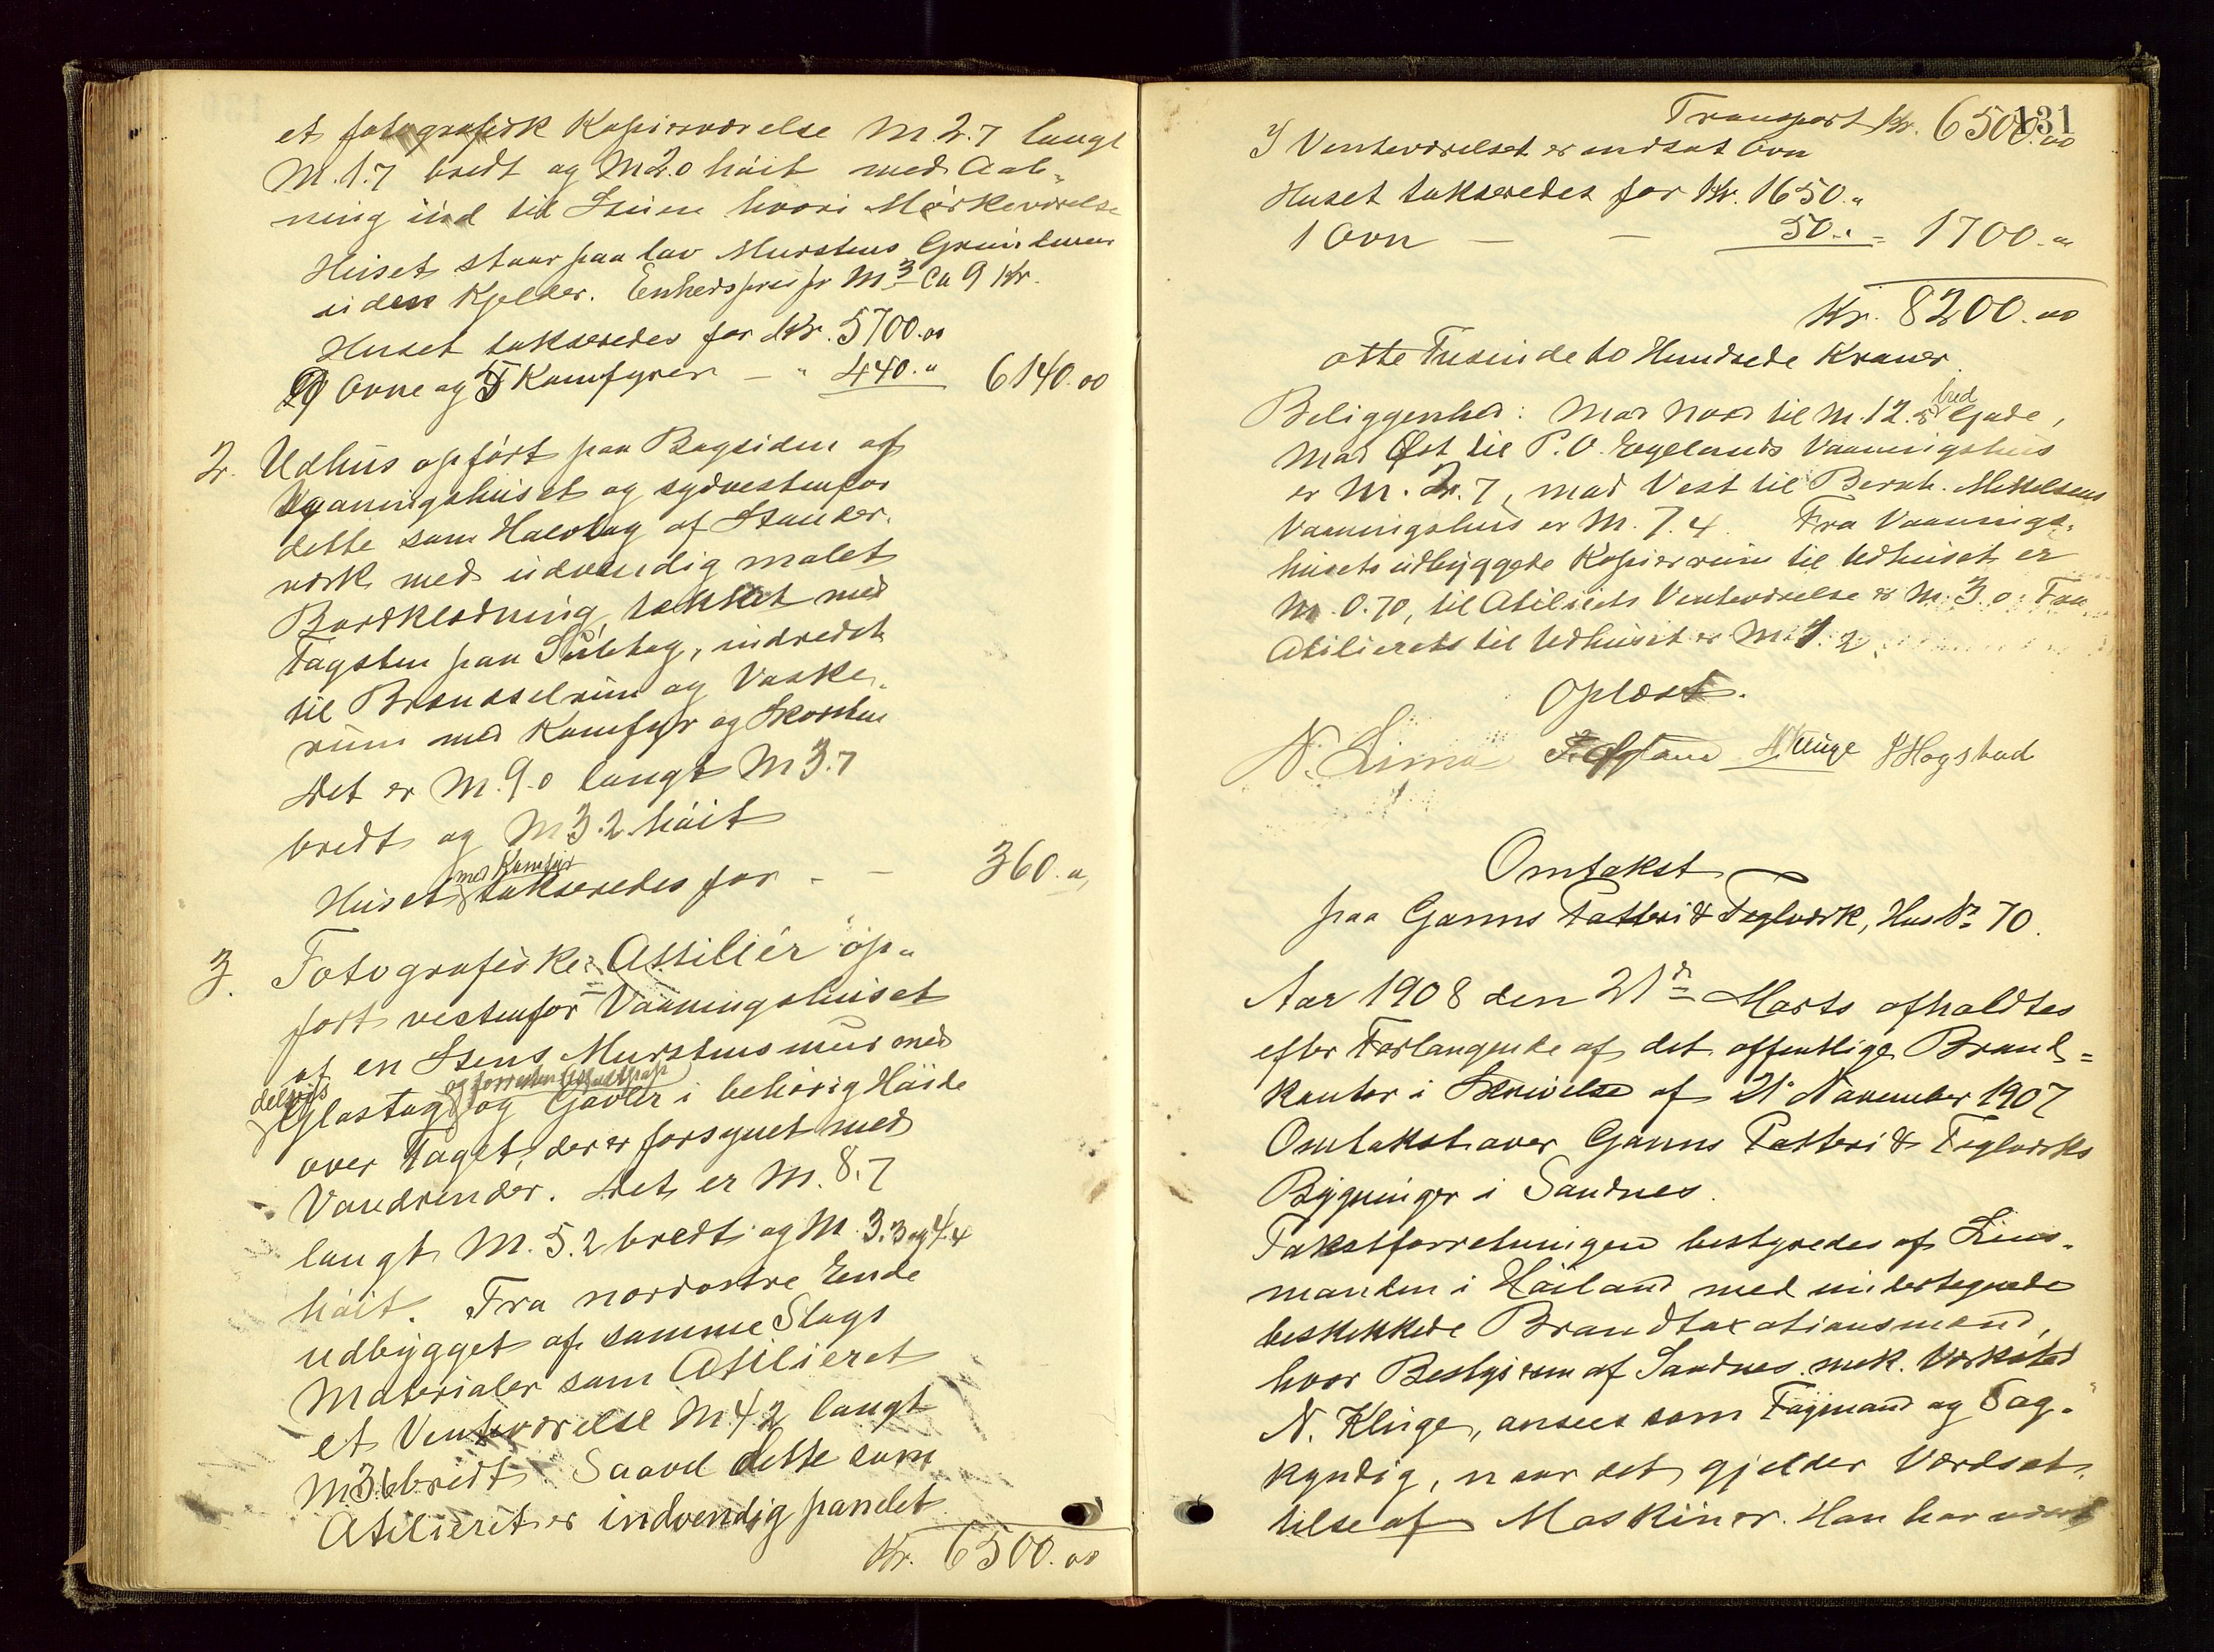 et fotografisk Kopiværelse M 2.7 langt
M. 1.7 bredt og M 2.0 høit med Aab-
ning ind til Stuen hvori Mørkeværelse
Huset staar paa lav Murstens Grundmur
uden Kjelder. Enhedspris pr M³ ca 9 Kr.
Huset takseredes for Kr. 5700.00
9 Ovne og 5 Komfyrer — " 440.00 6140.00
2. Udhus opført paa Bagsiden af
Vaaningshuset og sydvestenfor
dette som Halvtag af Stander-
værk med udvendig malet
Bordklædning, tækket med
Tagsten paa Sutetag, indredet
til Brændselrum og Vaske-
rum med Komfyr og Skorsten
Det er M. 9.0 langt M 3.7
bredt og M 3.2 høit
med Komfyr
Huset takseredes for - — 360.00
3. Fotografiske Attiliér op-
ført vestenfor Vaaningshuset
af en Stens Murstens mur med
delvis og forresten Asfaltpap
Glastag og Gavler i behørig Høide
over Taget, der er forsynet med
Vandrender. Det er M. 8.7
langt M. 5.2 bredt og M. 3.3 og 4.4
høit. Fra nordostre Ende
udbygget af samme Slags
Materialer som Atilieret
et Venteværelse M 4.2 langt
M 3.6 bredt. Saavel dette som
Atilieret er indvendig panelet
Kr. 6500.00
131
Transport Kr. 6500.00
I Venteværelset er indsat Ovn
Huset takseredes for Kr. 1650.00
1 Ovn — — 50.00 = 1700.00
Kr. 8200.00
otte Tusinde to Hundrede Kroner
Beliggenhed: Mod Nord til M. 12.5 bred Gade,
Mod Øst til P. O. Engelands Vaaningshus
er M. 2.7, mod Vest til Bernh. Mikkelsens
Vaaningshus er M. 7.4. Fra Vaanings-
husets udbyggede Kopierrum til Udhuset er
M. 0.70, til Atilierets Venteværelse er M. 3.0. Fra
Atilierets til Udhuset er M. 1.2
Oplæst.
N. Lima NKluge J Hogstad
Omtakst
paa Ganns Potteri & Teglværk, Hus No 70.
Aar 1908 den 21de Marts afholdtes
efter Forlangende af det offentlige Brand-
kontor i Skrivelse af 21 November 1907
Omtakst over Ganns Potteri & Teglværks
Bygninger i Sandnes.
Takstforretningen bestyredes af Lens-
manden i Høiland med undertegnede
beskikkede Brandtaxationsmænd,
hvor Bestyreren af Sandnes mek. Værksted
N. Kluge, ansees som Fagmand og Sag-
kyndig, naar det gjelder Værdsæt-
telse af Maskiner. Han har været